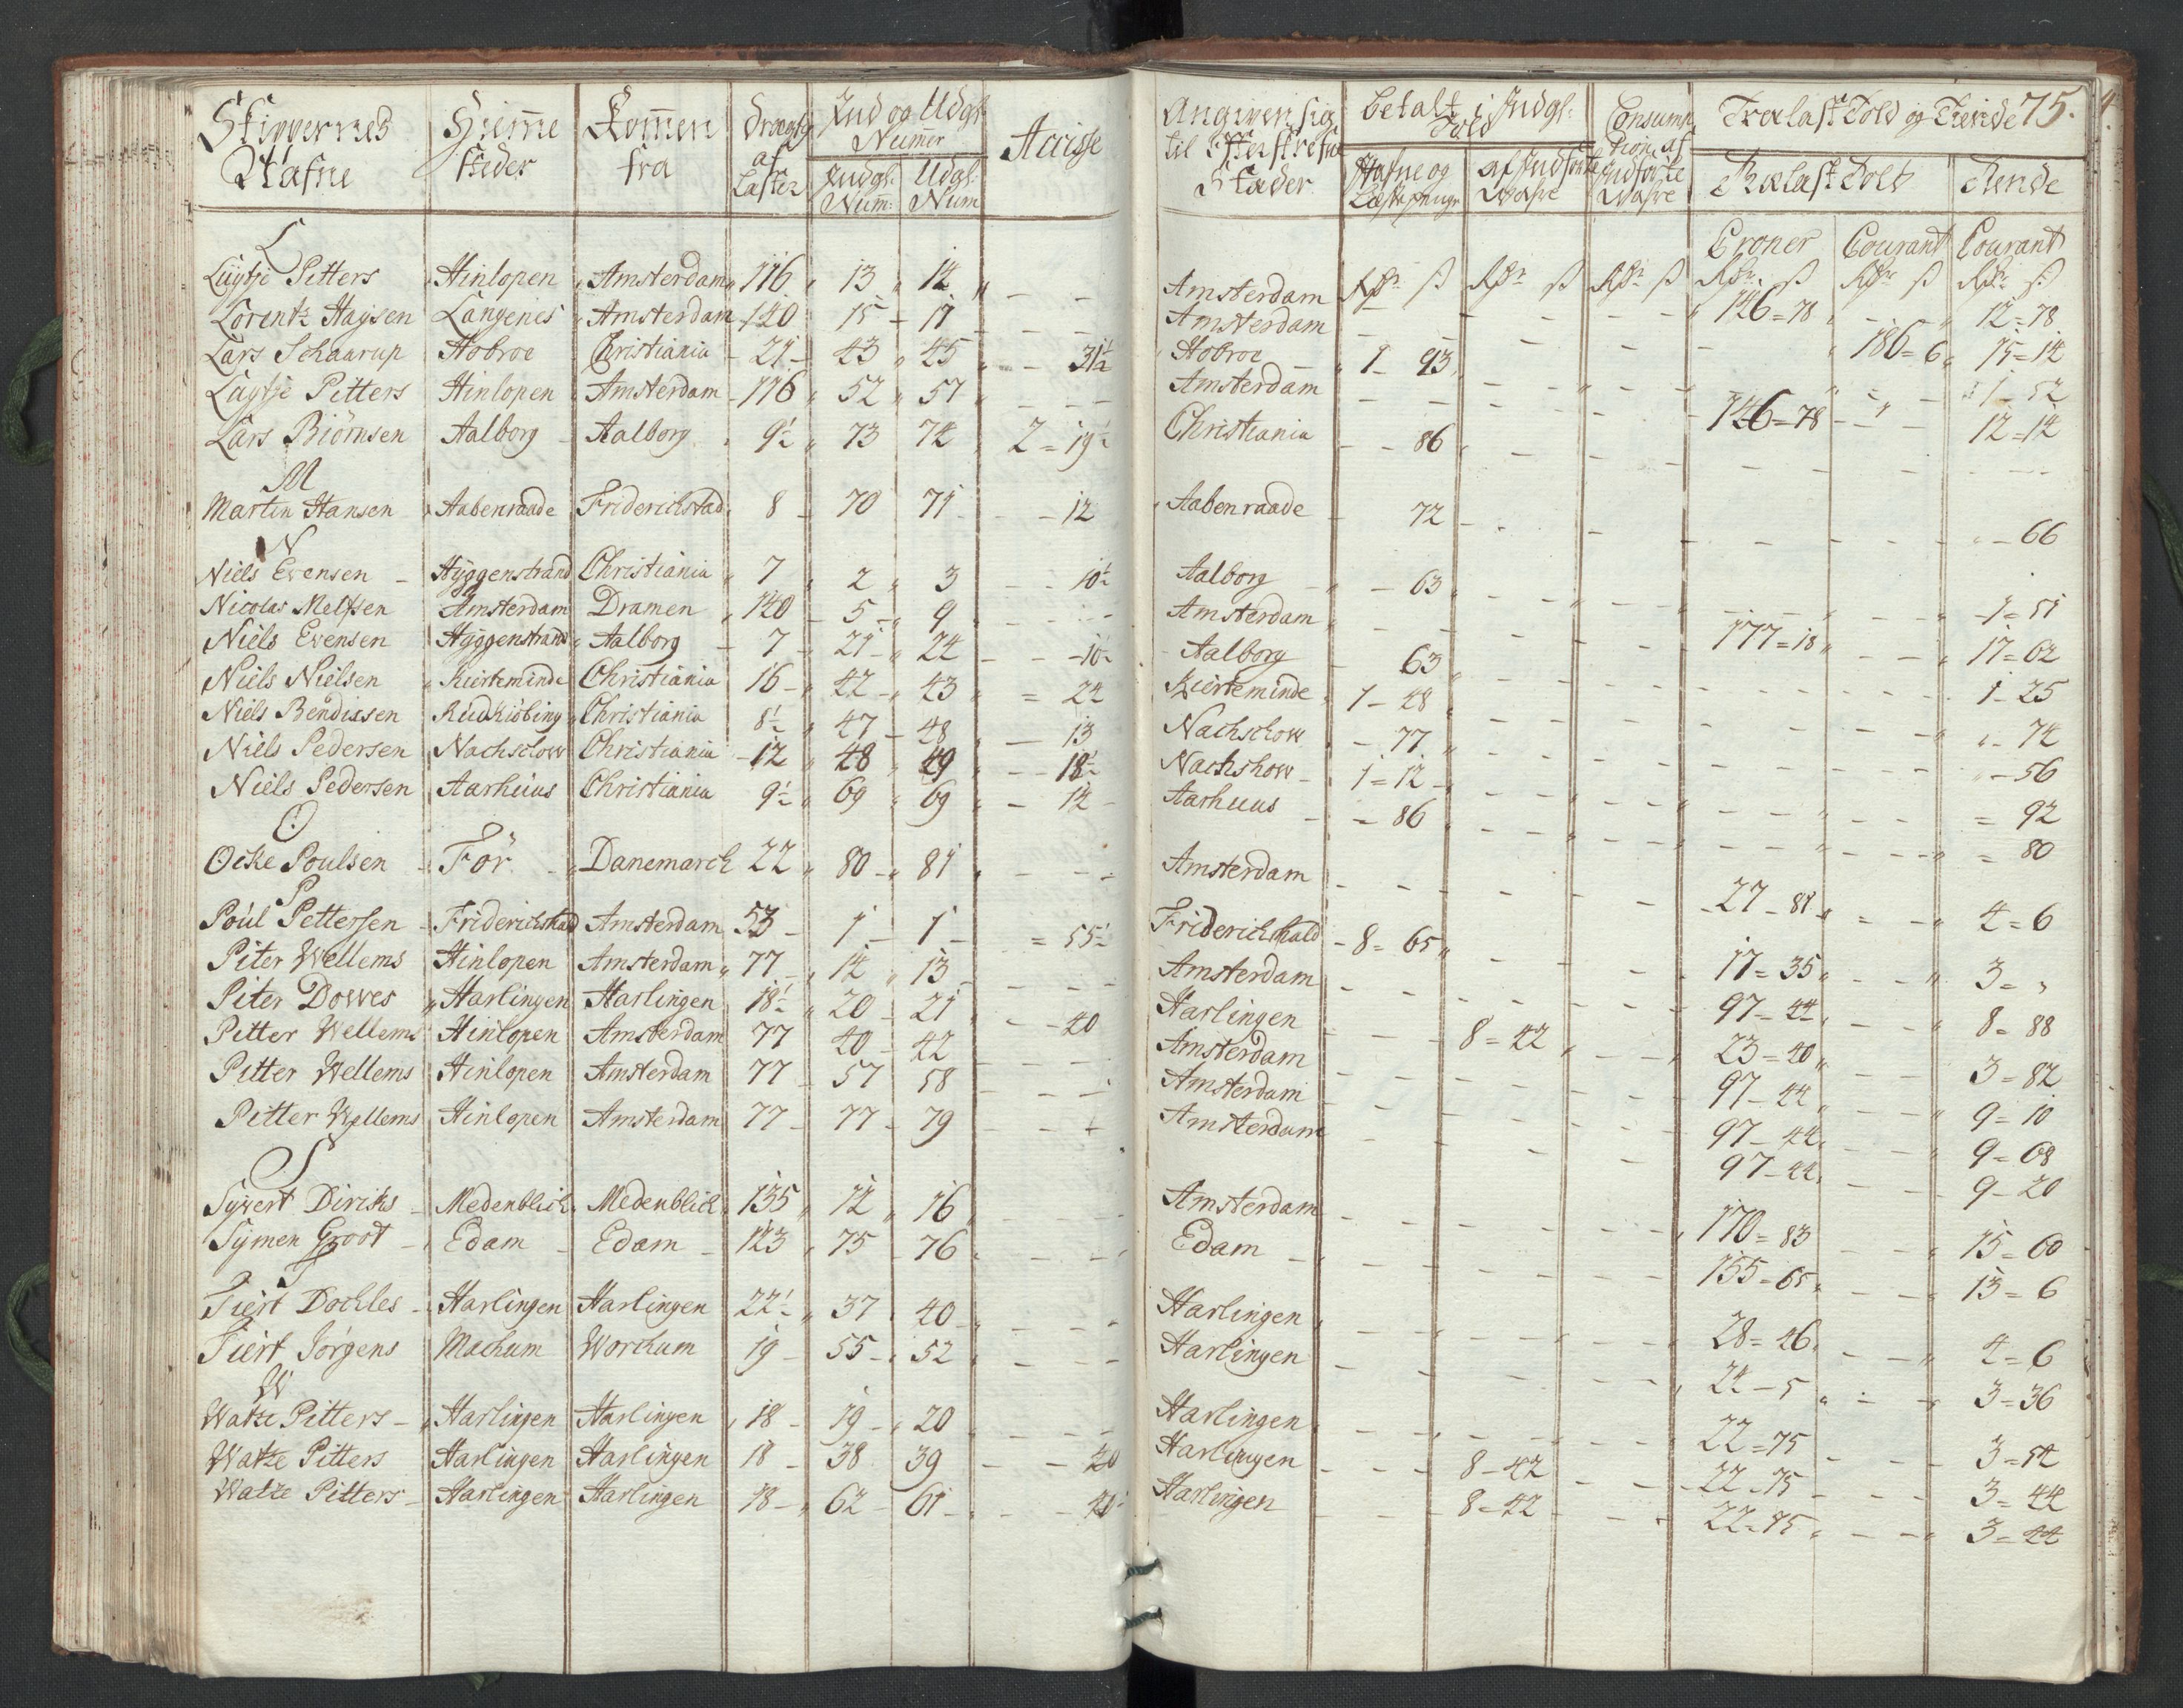 Skippernes Nafne | Hjemme steder | Kommen fra | Drægtig af Læster | Ind og Udgl: Numer | Indgl: Num: | Udgl: Num | Accisse
L
Luytje Pitters Hinlopen Amsterdam 116 13 14 - -
Lorentz Haysen Langenes Amsterdam 140 15 17 - -
Lars Schaarup Hobroe Christiania 21 43 45 - 31½
Luytje Pitters Hinlopen Amsterdam 116 52 57 - - -
Lars Biörnsen Aalborg Aalborg 9½ 73 74 2 = 19½
M
Martin Hansen Aabenraade Friderichstad 8 70 71 - 12
N
Niels Evensen Hyggenstrand Christiania 7 2 3 - 10½
Nicolas Melfsen Amsterdam Dramen 140 5 9 - - -
Niels Evensen Hyggenstrand Aalborg 7 21 24 - 10½
Niels Nielsen Kierteminde Christiania 16 42 43 = 24
Niels Bendixsen Rudkiöbing Christiania 8½ 47 48 - 13
Niels Pedersen Nachschow Christiania 12 48 49 - 18½
Niels Pedersen Aarhuus Christiania 9½ 69 69 - 14
O
Ocke Poulsen För Danemarch 22 80 81 - - -
P
Poul Pettersen Friderichshald Amsterdam 53 1 1 = 55½
Piter Wellems Hinlopen Amsterdam 77 14 13 - - -
Piter Dowes Harlingen Harlingen 18½ 20 21 - 40
Pitter Wellems Hinlopen Amsterdam 77 40 42 - - -
Pitter Wellems Hinlopen Amsterdam 77 57 58 - - -
Pitter Wellems Hinlopen Amsterdam 77 77 79 - - -
S
Sywert Dirichs Medenblich Medenblich 135 12 16 - - -
Symen Groot Edam Edam 123 75 76 - - -
T
Tiert Dochles Harlingen Harlingen 22½ 37 40 - - -
Tiert Jörgens Machum Worchum 19 55 52 - - -
W
Watze Pitters Harlingen Harlingen 18 19 20 - - -
Watze Pitters Harlingen Harlingen 18 38 39 - - 40
Watze Pitters Harlingen Harlingen 18 62 61 - - 40
Angiven sig til Efterskrefne Stæder | Betalt i Indgl: Told | Hafne og Læstepenge | af Indførte Wahre | Consumption af Indførte Wahre | Trælast Told og Tiende 75. | Trælast Told | Tiende
Croner Courant Courant
Rdr ß Rdr ß Rdr ß Rdr ß Rdr ß Rdr ß
Amsterdam - - 146 = 78 - 12 = 78
Amsterdam - - 186 = 6 15 = 14
Hobroe 1 - 93 - 1 - 52
Amsterdam - - 146 = 78 - 12 = 14
Christiania - 86 - - -
Aabenraade - 72 - - 66
Aalborg - 63 - 1 = 51
Amsterdam - - 177 = 18 - 17 = 62
Aalborg - 63 - 1 - 25
Kierteminde 1 - 48 - - 74
Nachschow - 77 - - 56
Nachshow 1 = 12 - = 92
Aarhuus = 86 - = 80
Amsterdam - - 27 - 81 - 4 = 6
Friderichshald - 8 = 65 - 17 = 35 - 3 = "
Amsterdam - - 97 - 44 - 8 = 88
Harlingen - 8 = 42 - 23 = 40 - 3 = 82
Amsterdam - - 97 - 44 - 9 = 10
Amsterdam - - 97 - 44 - 9 = 08
Amsterdam - - 97 - 44 - 9 - 20
Amsterdam - - 170 = 83 - 15 = 60
Edam - - 155 = 65 - 13 = 6
Harlingen - - 28 = 46 - 4 = 6
Harlingen - - 24 - 5 - 3 = 36
Harlingen - - 22 = 75 - 3 = 54
Harlingen - 8 - 42 - 22 = 75 - 3 = 44
Harlingen - 8 = 42 - 22 = 75 - 3 = 44